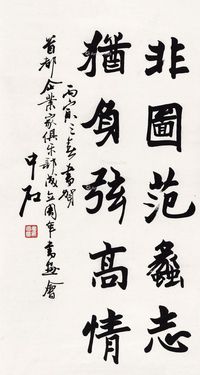 非圖范蠡志
猶負弦高情
丙寅之春書賀
首都企業家俱乐部成立周年書画會
中石